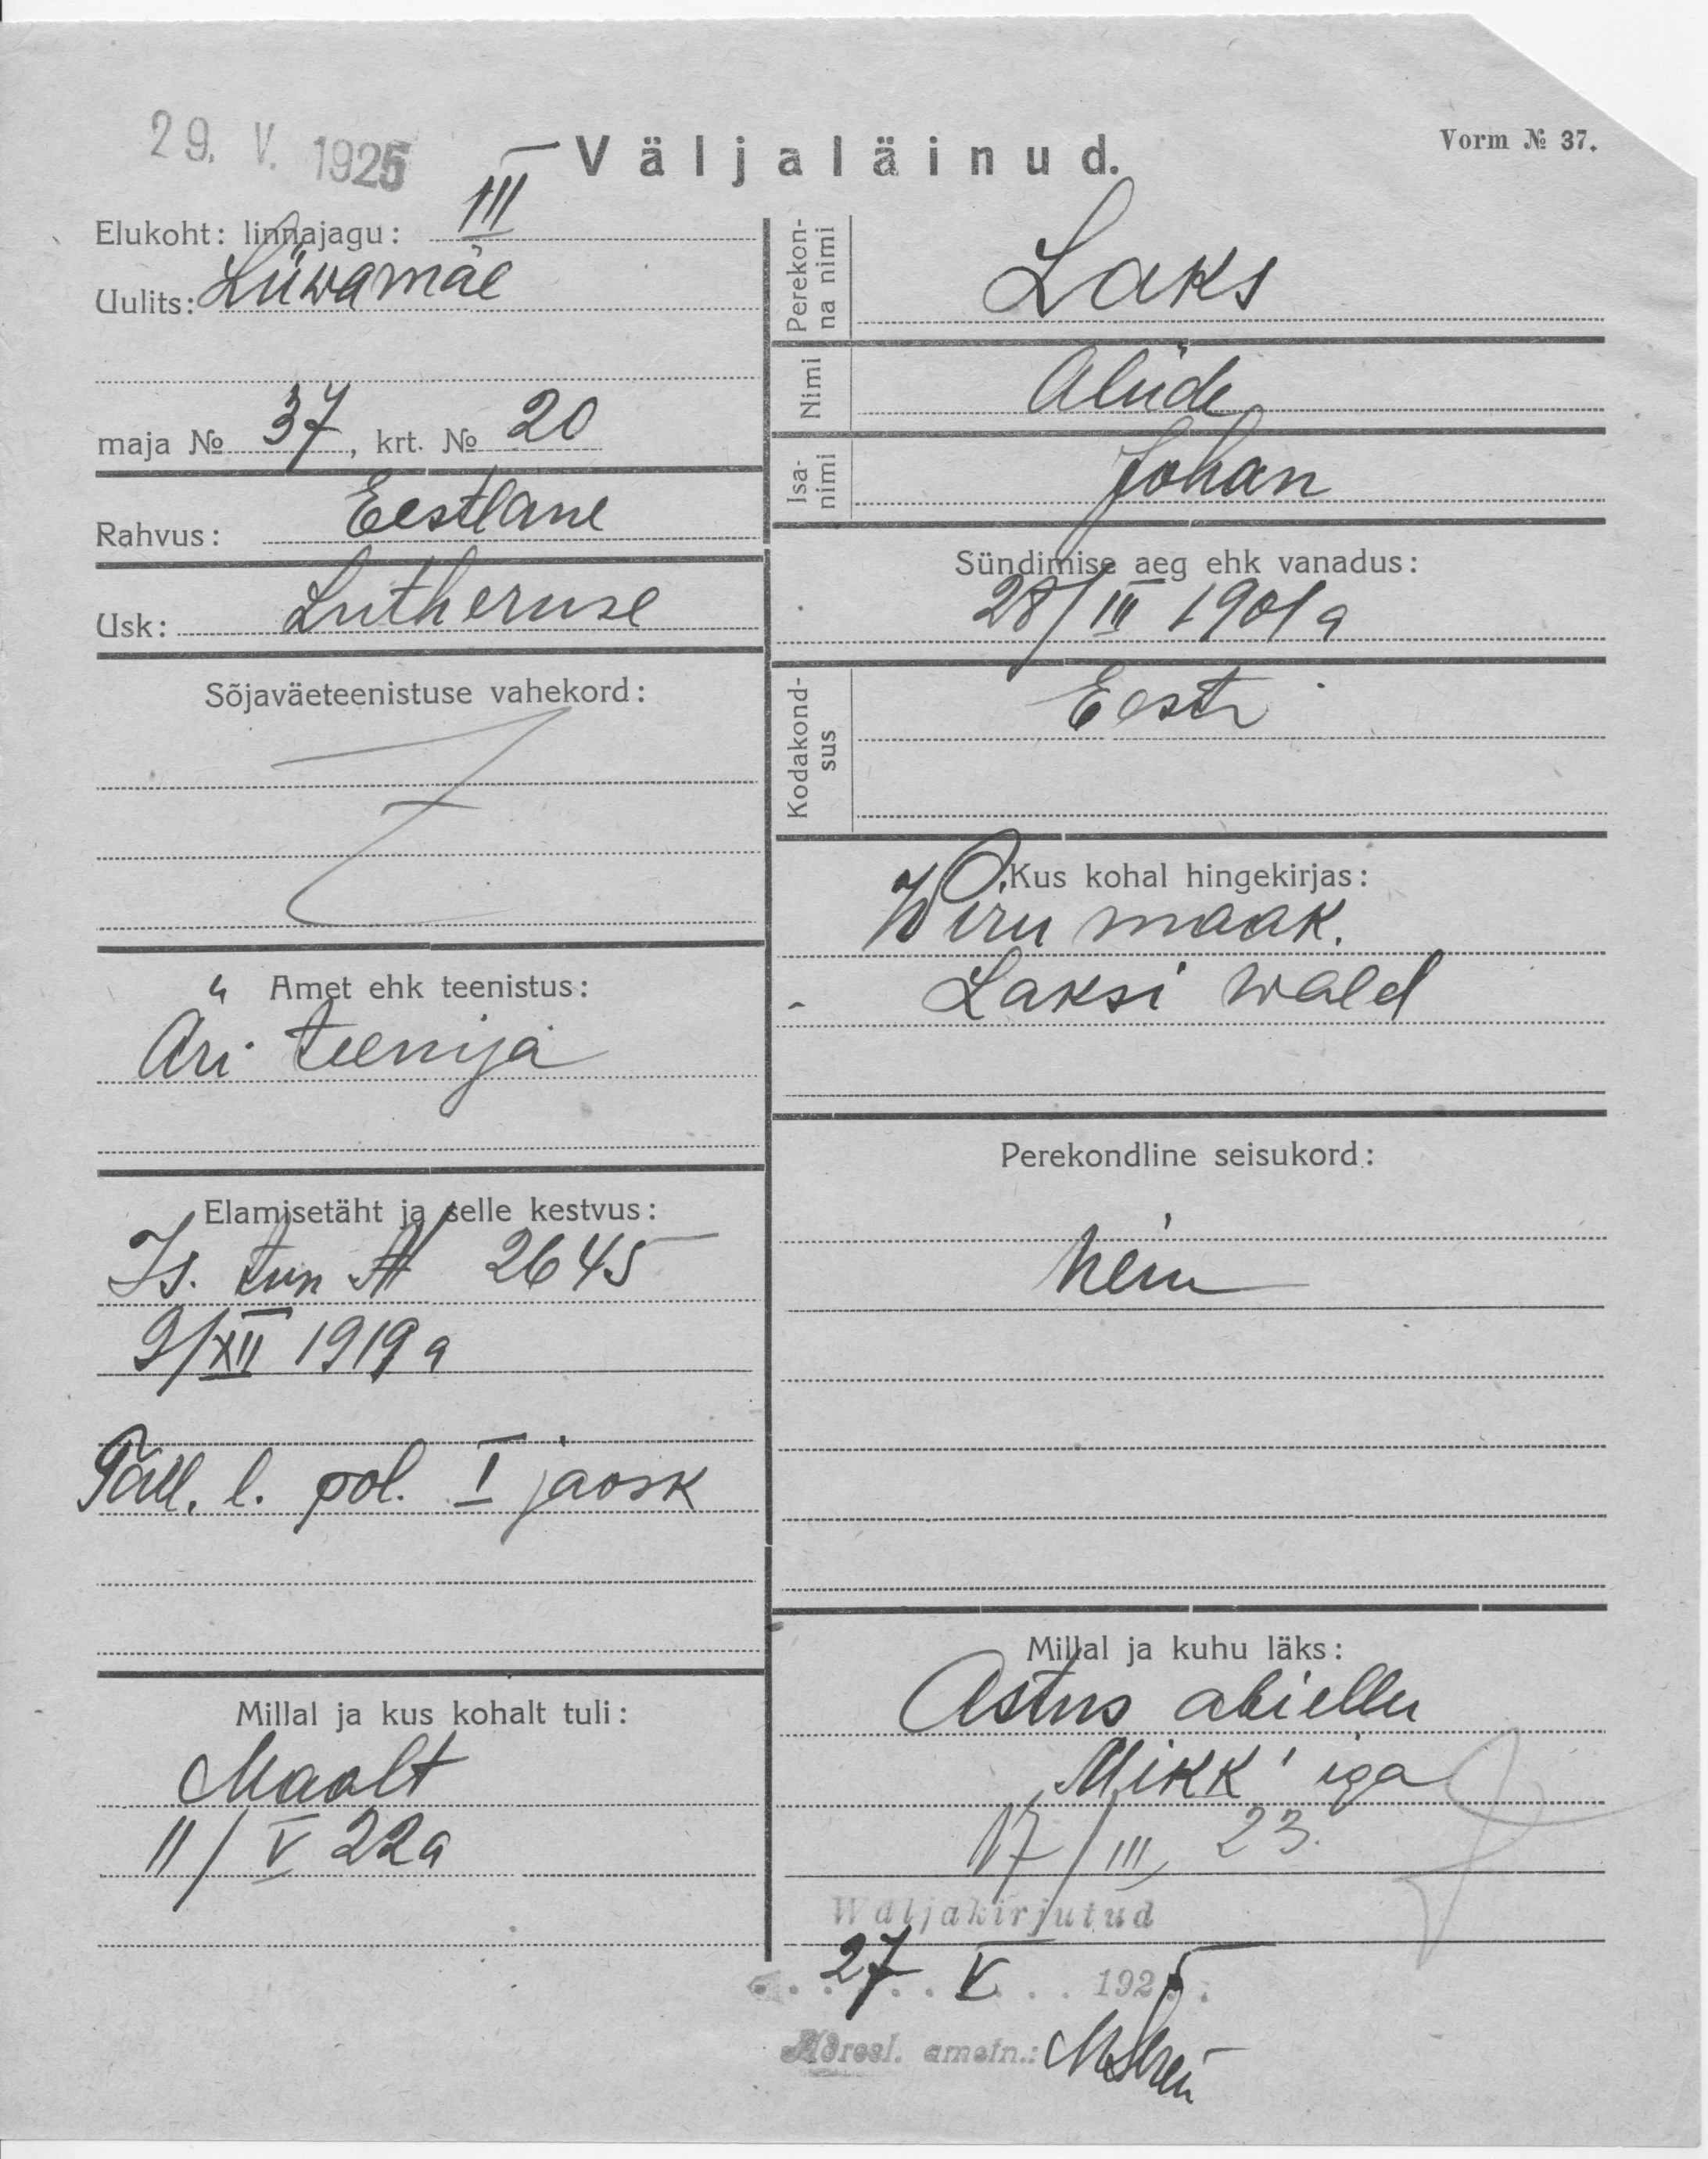 29. V. 1925
Väljaläinud.
Vorm № 37.
Elukoht: linnajagu: III
Uulits: Liiwamäe
maja № 37, krt. № 20
Rahvus: Eestlane
Usk: Lutheruse
Sõjaväeteenistuse vahekord:
Amet ehk teenistus:
Äri teenija
Elamisetäht ja selle kestvus:
Is. tun № 2645
9/XII 1919 a
Tall. l. pol. I jaosk
Millal ja kus kohalt tuli:
Maalt
11/V 22 a
Perekonna nimi Laks
Nimi Aliide
Isanimi Johan
Sündimise aeg ehk vanadus:
28/III 1901 a
Kodakondsus Eesti
Kus kohal hingekirjas:
Wiru maak.
Laksi wald
Perekondline seisukord:
Neiu
Millal ja kuhu läks:
Astus abiellu
Mikk'iga
17/III 23.
Wäljakirjutud
27. V. 1925.
Adresl. ametn.: